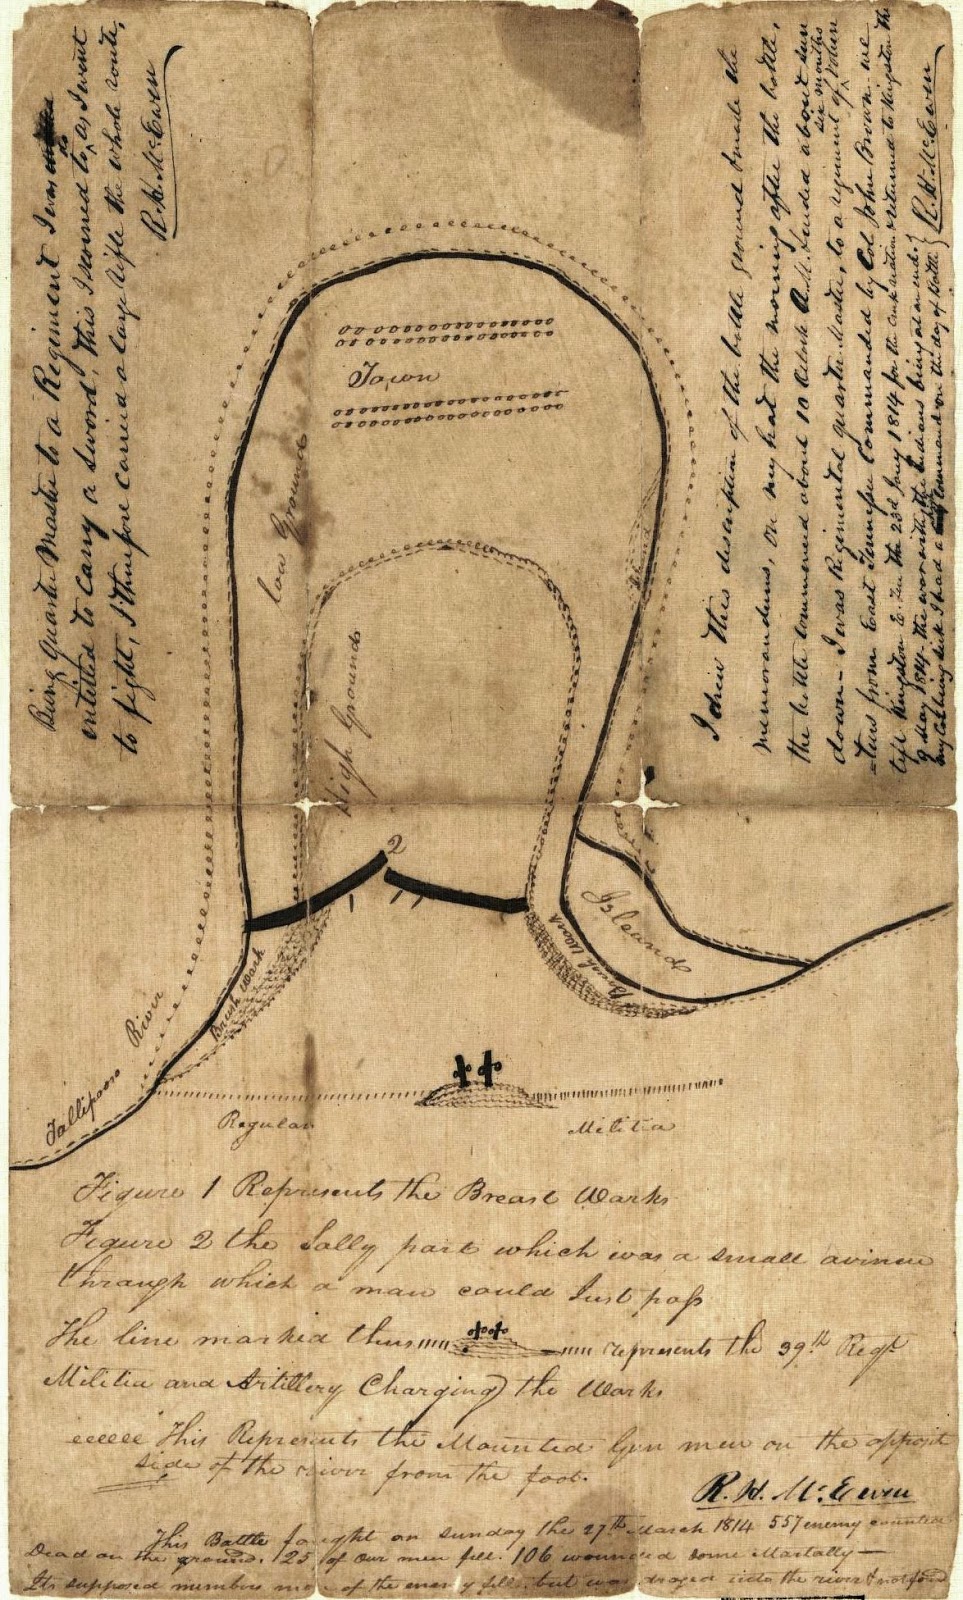 Being Quarter Master to a Regiment I was
entitled to carry a sword, this I scorned to, as I went
to fight, I therefore carried a large rifle the whole route,
R. H. McEwen
I drew this description of the battle ground & made the
memorandums, on my hat the morning after the battle,
the battle commenced about 10 Oclock A.M. & ended about sun
down - I was Regimental quarter Master, to a regiment of six months Volun
=tiers from East Tennessee Commanded by Col John Brown. we
left Kingston E. Ten the 23d Jany 1814 for the & returned to Kingston the
May 1814. the war with the Indians being at an end.
I had a command on the day of battle
R. H. McEwen
Town
low Ground
High Ground
Island
2
1
Island
Brush Work
Brush Work
Tallipoosa River
Regular
Militia
Figure 1 Represents the Breast Works
Figure 2 the Sally part which was a small avinue
through which a man could Just pass
The line marked thus represents the 39th Regt
Militia and Artillery Charging the Works
eeeeee This Represents the Mounted Gun men on the opposit
side of the river from the foot.
R. H. McEwen
This Battle faught on sunday the 27th March 1814 557 enemy counted
Dead on the ground. 125 of our men fell. 106 wounded some Martally —
Its supposed numbers more of the enemy fell. but was draged into the river & not found